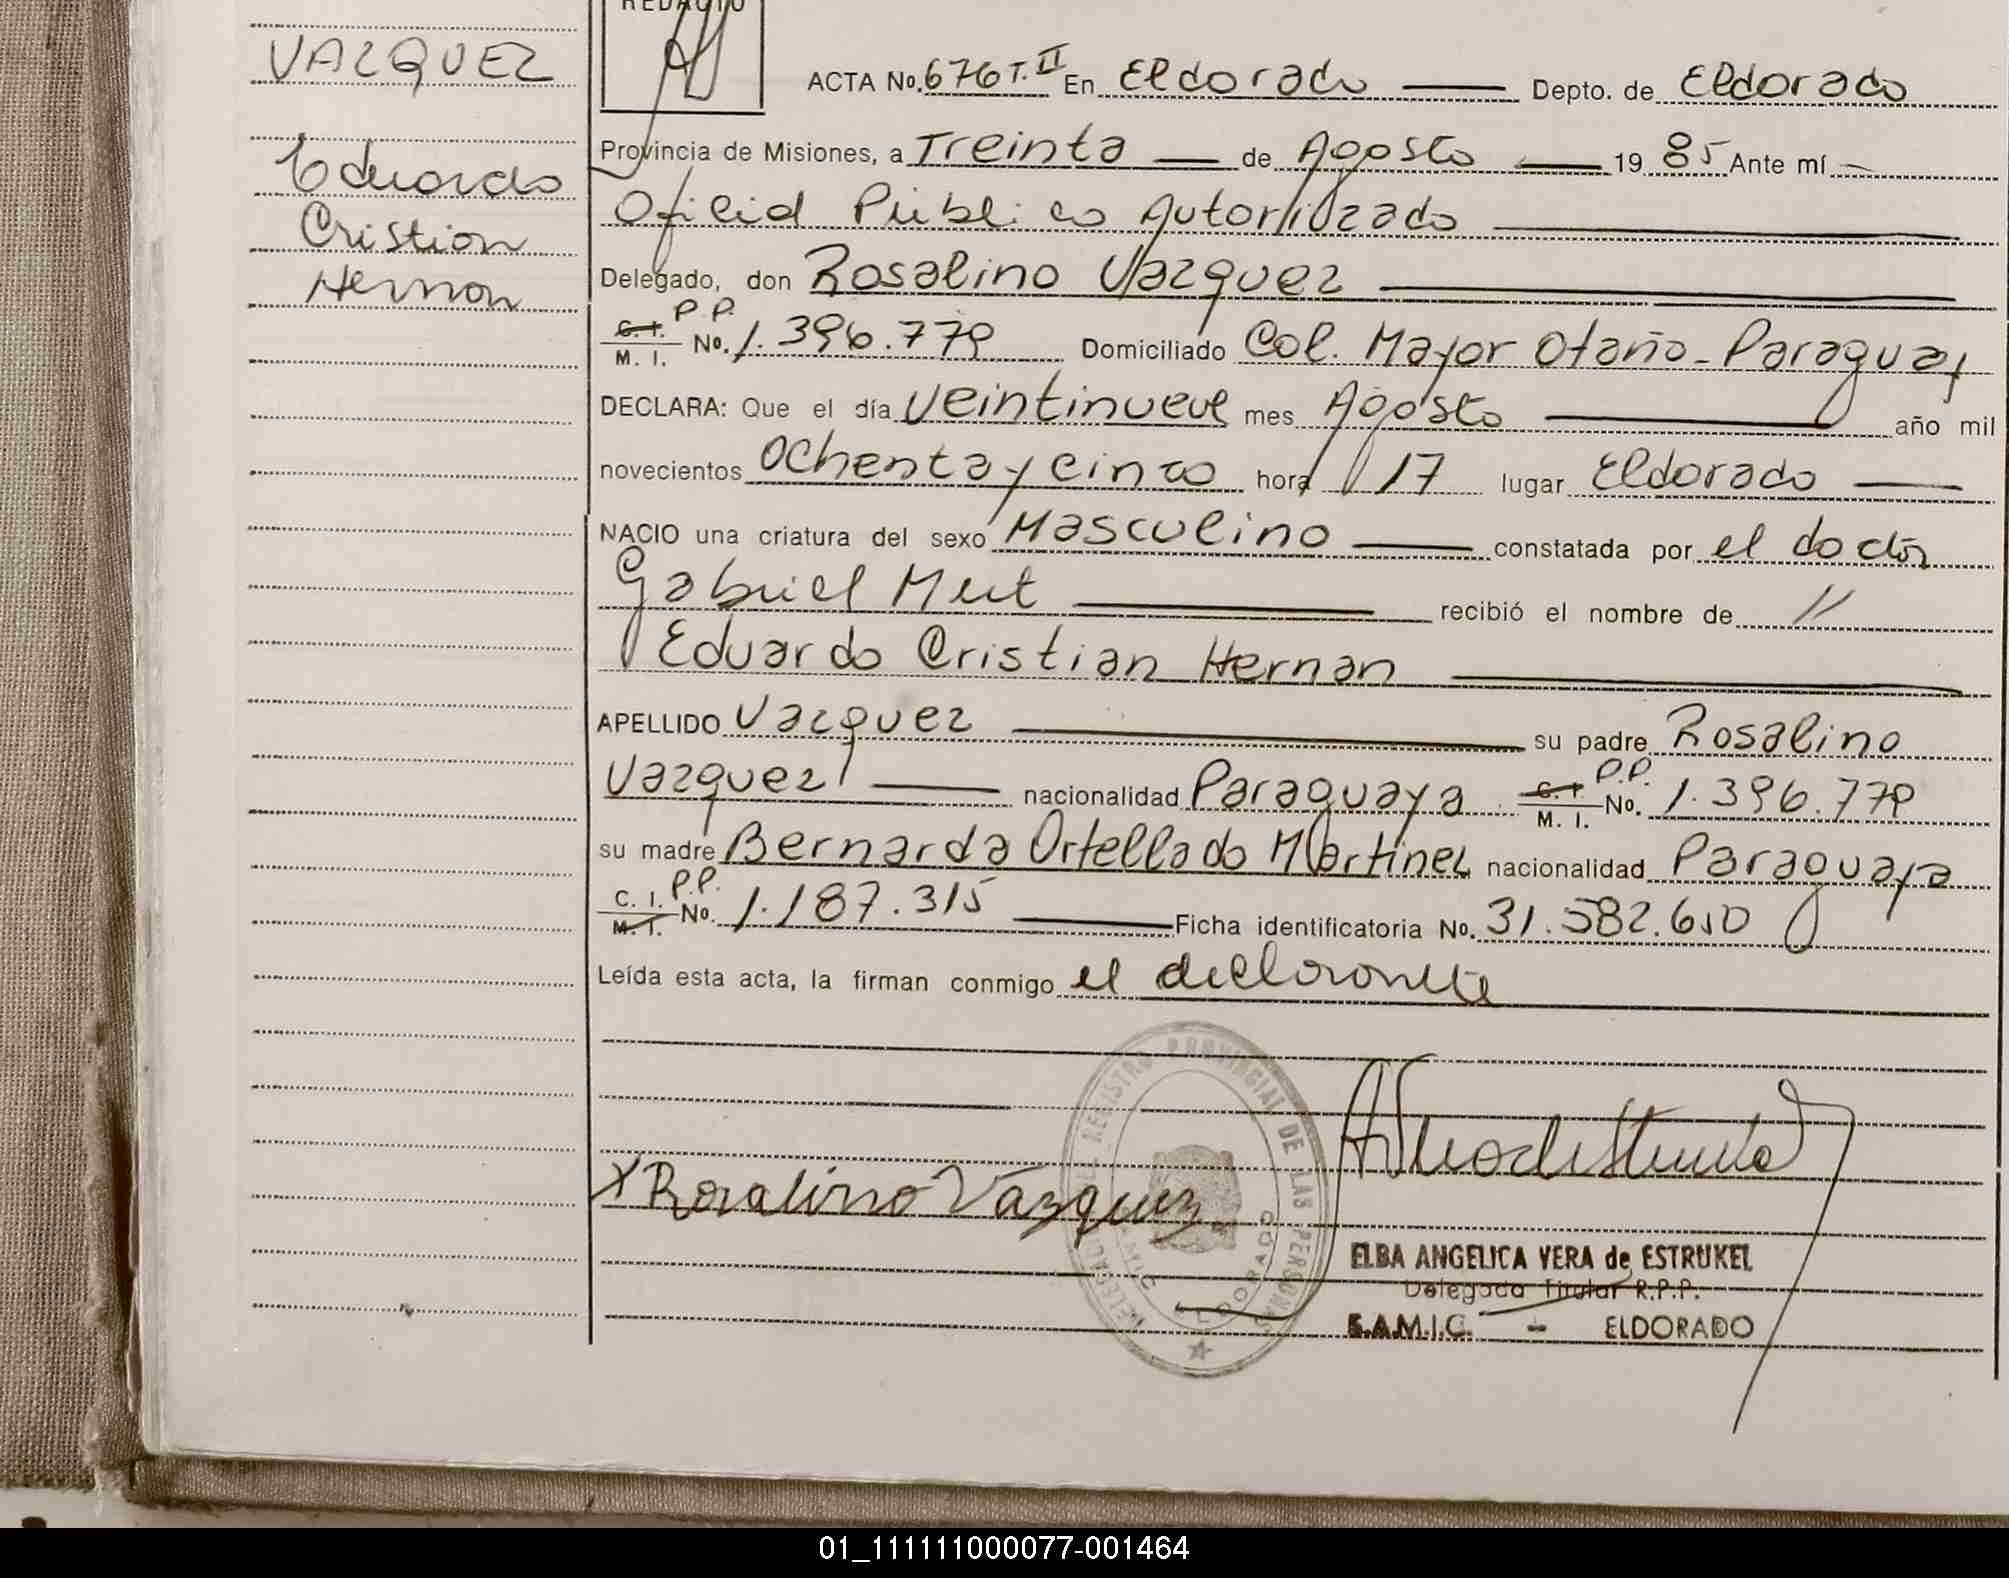 VAZQUEZ
Eduardo
Cristian
Hernan
REDACTO
ACTA No. 676 T. II En Eldorado Depto. de Eldorado
Provincia de Misiones, a Treinta de Agosto 19 85 Ante mí
Oficial Público Autorizado
Delegado, don Rosalino Vazquez
C. I. P.P.
M. I. No. 1.396.779 Domiciliado Col. Mayor Otaño - Paraguay
DECLARA: Que el día veintinueve mes Agosto año mil
novecientos Ochenta y cinco hora 17 lugar Eldorado
NACIO una criatura del sexo Masculino constatada por el doctor
Gabriel recibió el nombre de //
Eduardo Cristian Hernan
APELLIDO Vazquez su padre Rosalino
Vazquez nacionalidad Paraguaya C. I. P.P. M. I. No. 1.396.779
su madre Bernarda Ortellado Martinez nacionalidad Paraguaya
C. I. P.P.
M. I. No. 1.187.315 Ficha identificatoria No. 31.582.650
Leída esta acta, la firman conmigo el declarante
REGISTRO PROVINCIAL DE LAS PERSONAS
ELDORADO
X Rosalino Vazquez
ELBA ANGELICA VERA de ESTRUKEL
Delegada Titular R.P.P.
S.A.M.I.C. - ELDORADO
01_111111000077-001464